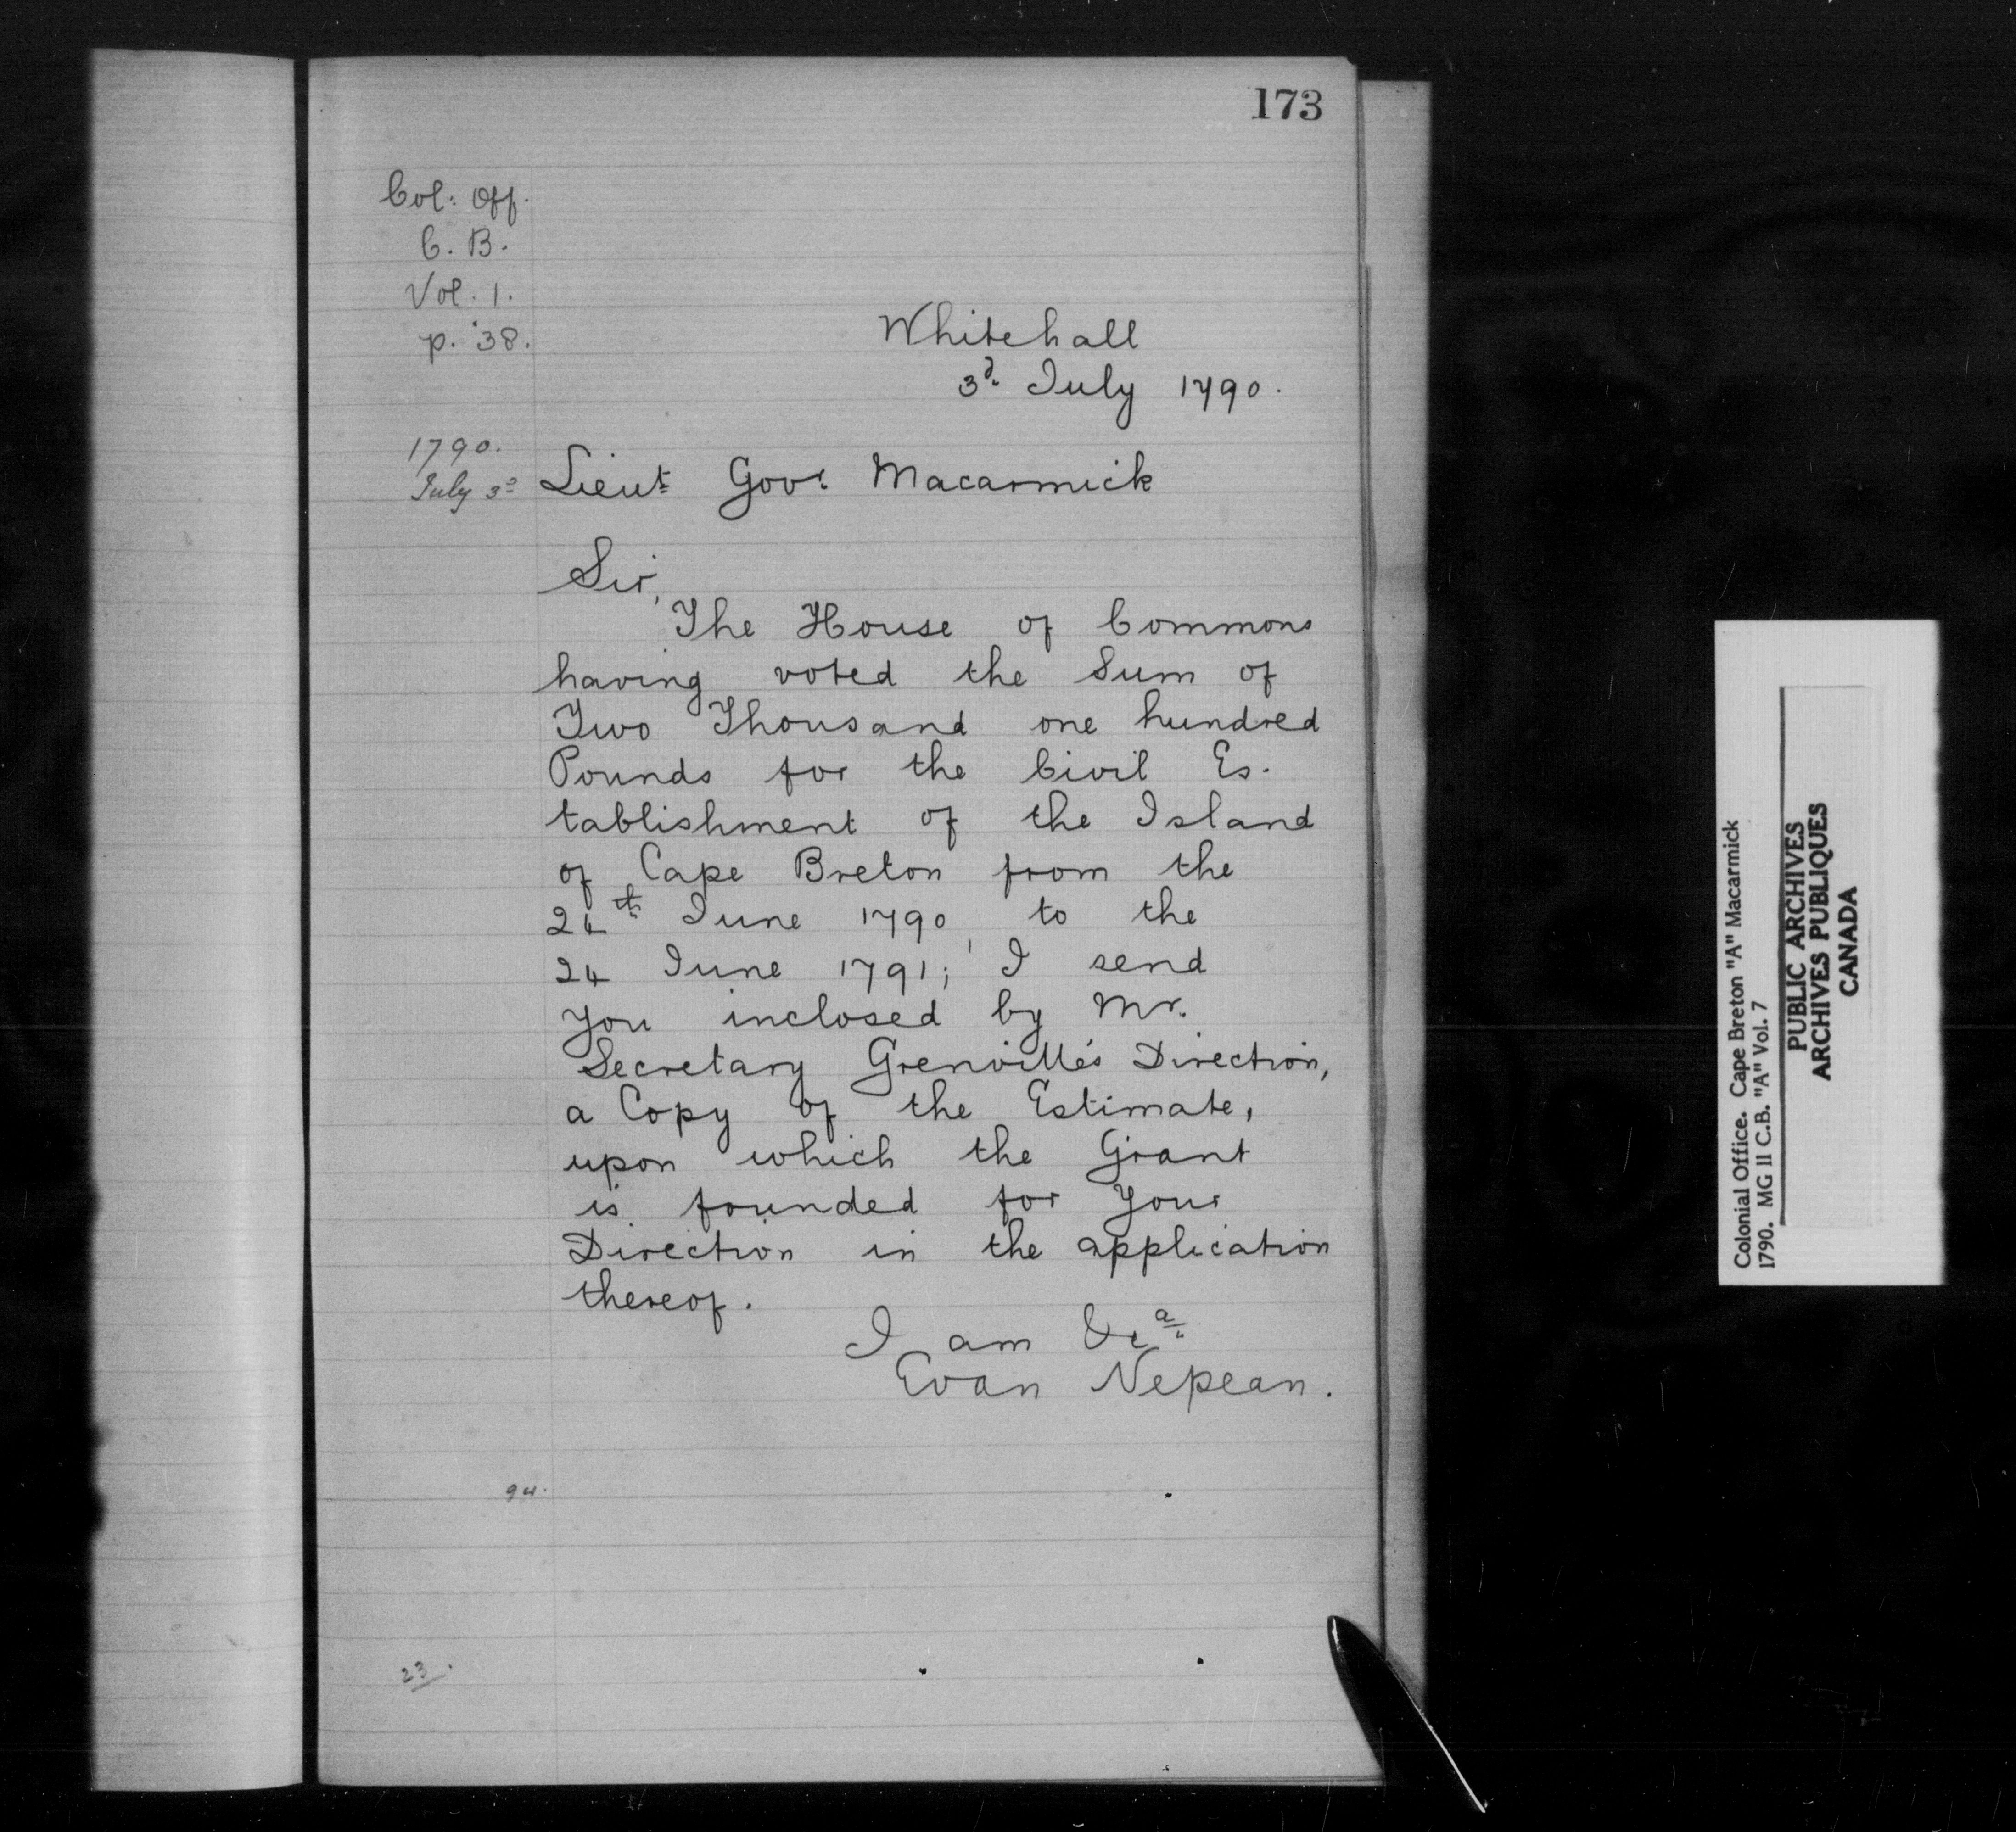 173
Col: Off.
C. B.
Vol. 1.
p. 38.
Whitehall
3d. July 1790.
1790.
July 3d
Lieut Govr. Macarmick
Sir,
The House of Commons
having voted the Sum of
Two Thousand one hundred
Pounds for the Civil Es-
tablishment of the Island
of Cape Breton from the
24th June 1790, to the
24 June 1791; I send
you inclosed by Mr.
Secretary Grenville's Direction,
a Copy of the Estimate,
upon which the Grant
is founded for your
Direction in the application
thereof.
I am &ca.
Evan Nepean.
94.
23.
Colonial Office. Cape Breton "A" Macarmick
1790. MG 11 C.B. "A" Vol. 7
PUBLIC ARCHIVES
ARCHIVES PUBLIQUES
CANADA